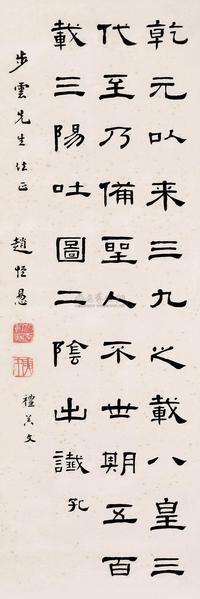 乾元以来三九之載八皇三
代至乃備聖人不世期五百
載三陽吐圖二陰出讖孔
禮器文
步雲先生法正
趙恆惕